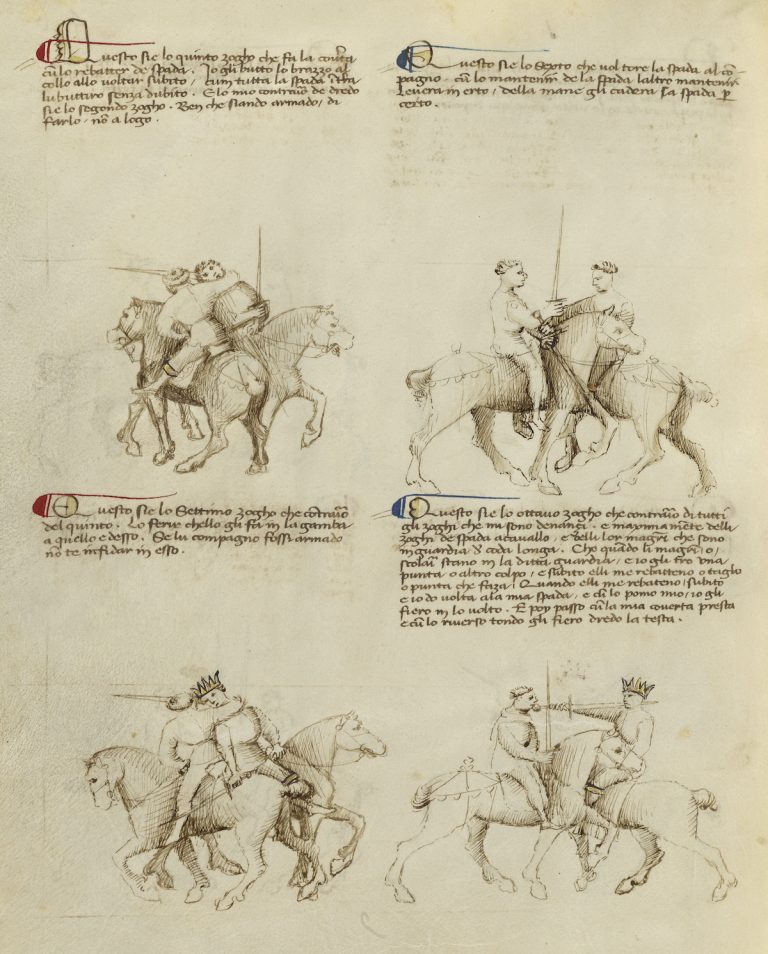 Questo sie lo quinto zogho che fa la coverta
cu lo rebatter de spada. Io gli butto lo brazzo al
collo allo voltar subito, cum tutta la spada in terra
lu buttaro senza dubito. E lo mio contrario de dredo
sie lo segondo zogho. Ben che siando armado, di
farlo, non a logo.
Questo sie lo Sexto che vol tore la spada al com-
pagno. cu lo mantenir de la spada laltro mantenir
levera in erto, della mane gli cadera la spada per
certo.
Questo sie lo Settimo zogho che contrario
del quinto. Lo ferir chello gli fa in la gamba
a quello e desso. Se lu compagno fossi armado
non te infidar in esso.
Questo sie lo ottavo zogho che contrario di tutti
gli zoghi che mi sono denançi. e maximamente delli
zoghi de spada a cavallo, e delli lor magistri che sono
in guardia de coda longa. Che quando li magistri, o,
scolari stano in la ditta guardia, e io gli tro una
punta o altro colpo, e subito elli me rebatteno o taglio
o punta che faza. Quando elli me rebateno, subito
e io do volta a la mia spada, e cu lo pomo mio, io gli
fiero in lo volto. E poy passo cu la mia coverta presta
e cu lo riverso tondo gli fiero dredo la testa.